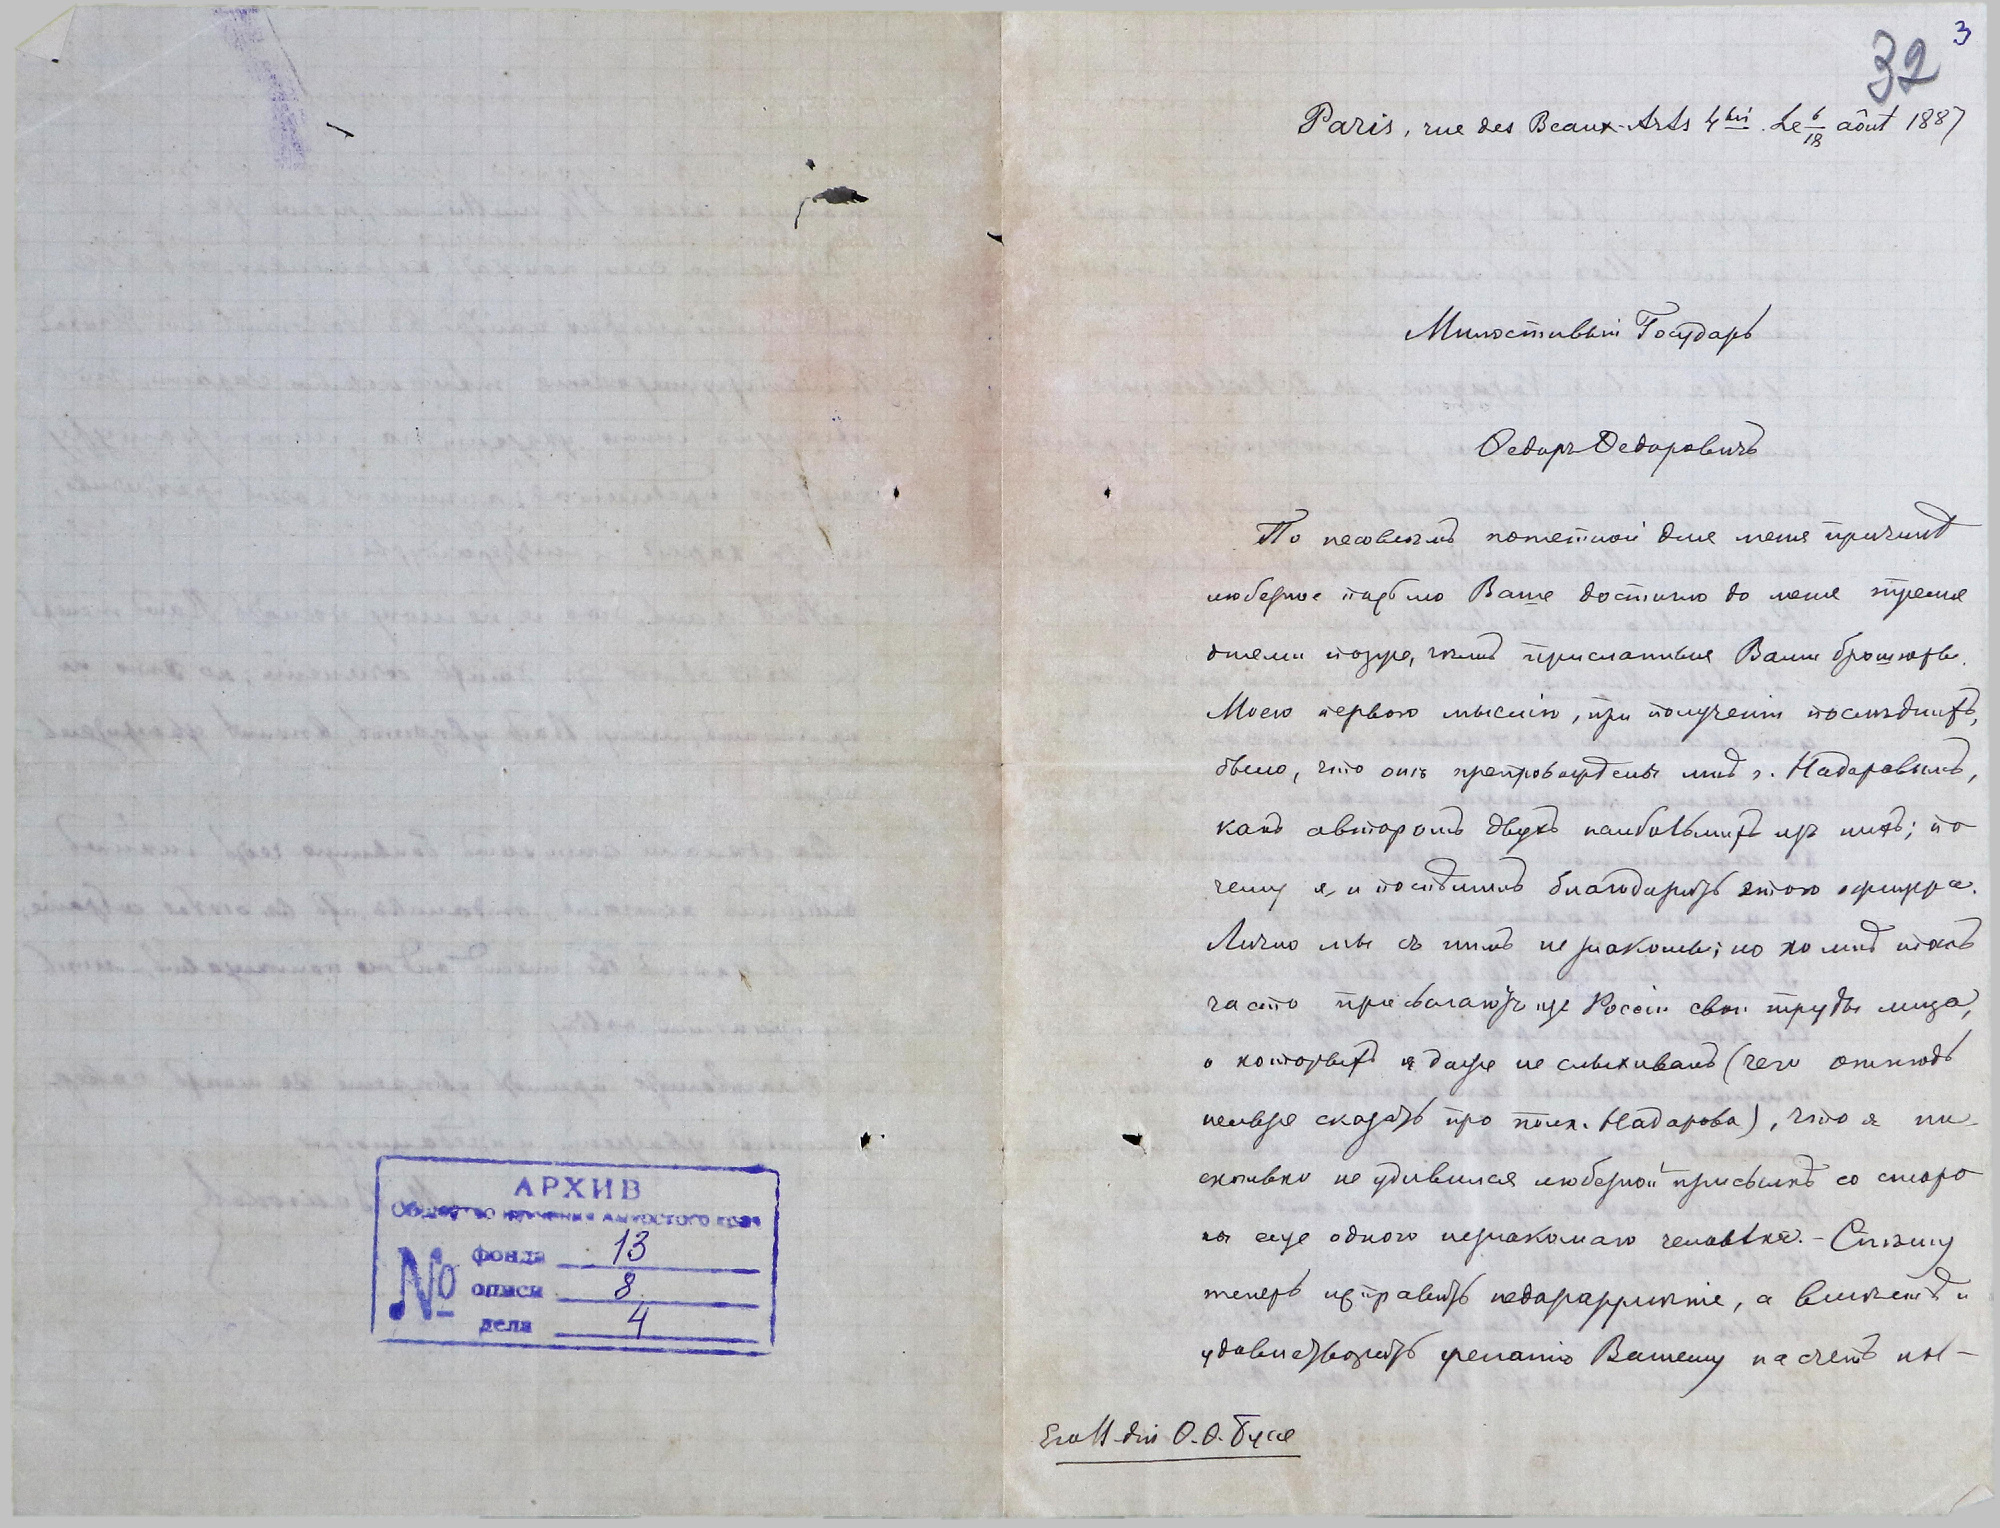 АРХИВ
Общество изучения Амурского края
№
фонда 13
описи 8
дела 4
32
3
Paris, rue des Beaux-Arts 4 bis. Le 6/18 août 1887
Милостивый Государь
Ѳедоръ Ѳедоровичъ
По несовсѣмъ понятной для меня причинѣ
любезное письмо Ваше достигло до меня тремя
днями позже, чѣмъ присланныя Вами брошюры.
Моею первою мыслію, при полученіи послѣднихъ,
было, что онѣ препровождены мнѣ г. Надаровымъ,
какъ авторомъ двухъ наибольшихъ изъ нихъ; по
чему я и поспѣшилъ благодарить этого офицера.
Лично мы съ нимъ не знакомы; но ко мнѣ такъ
часто присылаютъ изъ Россіи свои труды лица,
о которыхъ я даже не слыхивалъ (чего отнюдь
нельзя сказать про полк. Надарова), что я ни
сколько не удивился любезной присылкѣ со сторо
ны еще одного незнакомаго человѣка. – Спѣшу
теперь исправить недоразумѣніе, а вмѣстѣ и
удовлетворить желанію Вашему на счетъ нѣ-
Его В-дію Ѳ. Ѳ. Буссе